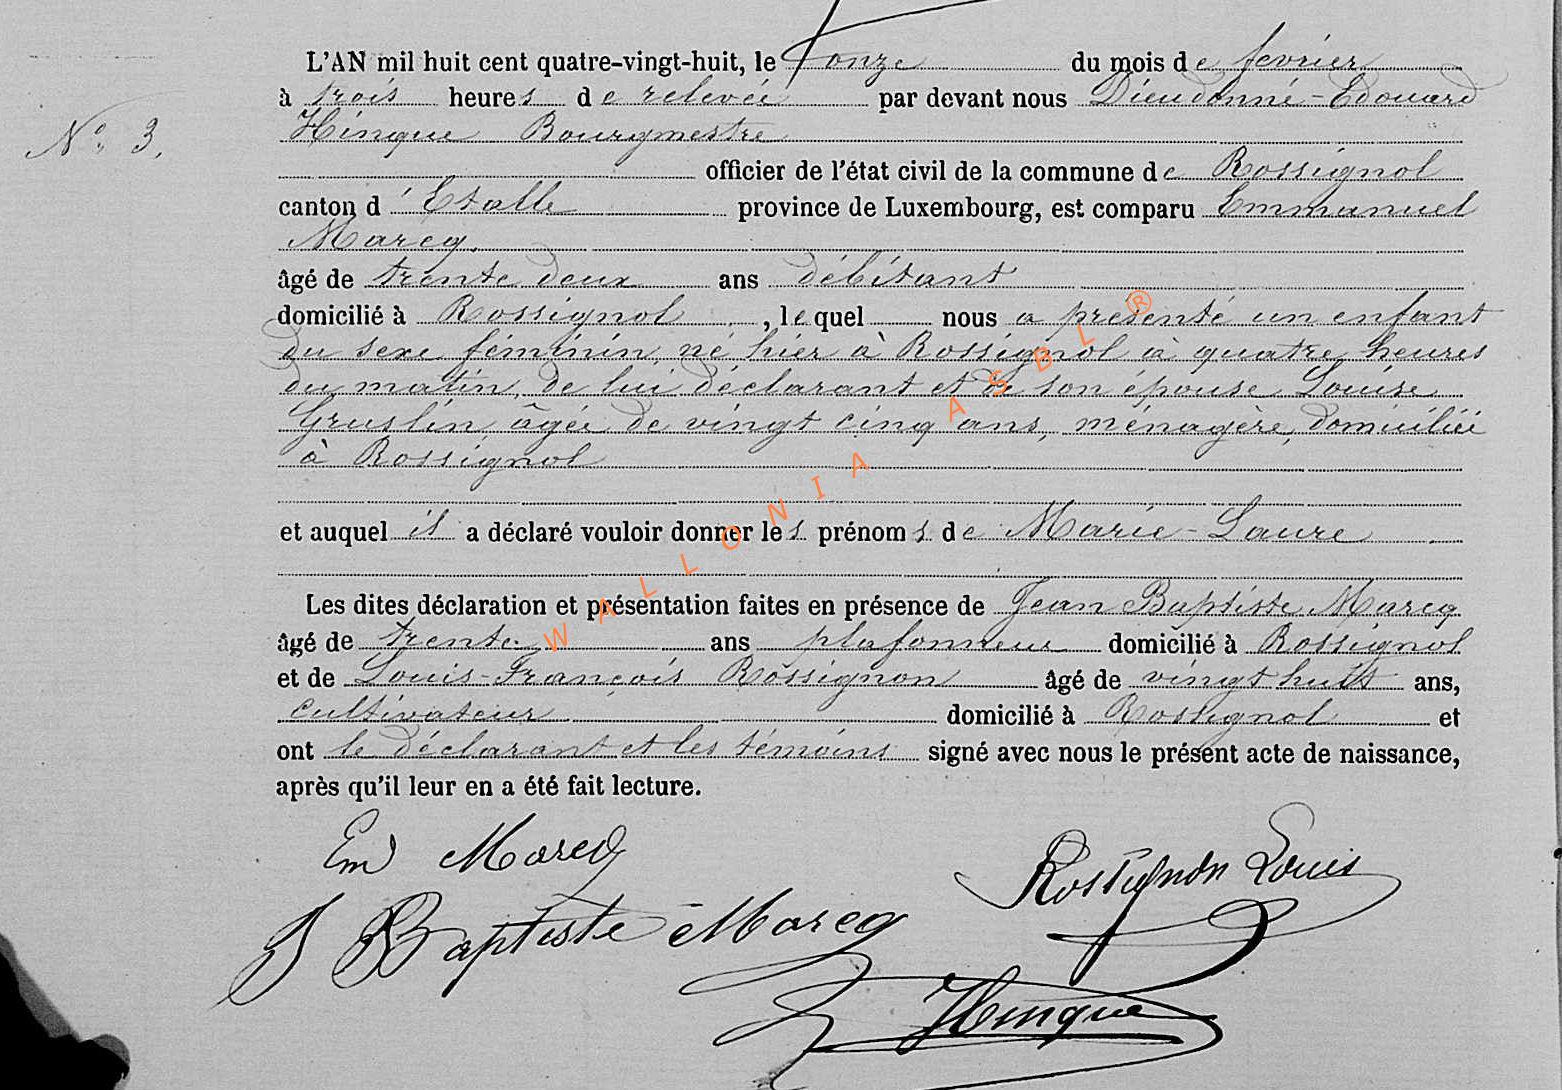 L'AN mil huit cent quatre-vingt-huit, le onze du mois de fevrier
à trois heures de relevée par devant nous Dieudonné-Edouard
N° 3. Hinque Bourgmestre
officier de l'état civil de la commune de Rossignol
canton d'Etalle province de Luxembourg, est comparu Emmanuel
Marcq
âgé de trente deux ans débitant
domicilié à Rossignol, lequel nous a présenté un enfant
du sexe féminin, né hier à Rossignol à quatre heures
du matin, de lui déclarant et de son épouse Louise
Gruslin âgée de vingt cinq ans, ménagère, domiciliée
à Rossignol
et auquel il a déclaré vouloir donner les prénoms de Marie-Laure
Les dites déclaration et présentation faites en présence de Jean Baptiste Marcq
âgé de trente ans plafonneur domicilié à Rossignol
et de Louis-François Rossignon âgé de vingt huit ans,
cultivateur domicilié à Rossignol et
ont le déclarant et les témoins signé avec nous le présent acte de naissance,
après qu'il leur en a été fait lecture.
Em Marcq
Rossignon Louis
J Baptiste Marcq
Hinque
WALLONIA ASBL ®